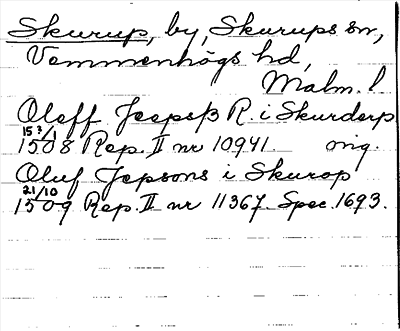 Skurup, by, Skurups sn,
Vemmenhögs hd,
Malm. l.
Oleff Jeepsß R. i Skurdorp
15 3/1
1508 Rep. II nr 10941. orig.
Oluf Jepsons i Skurop
21/10
1509 Rep. II nr 11367. Spec. 1693.